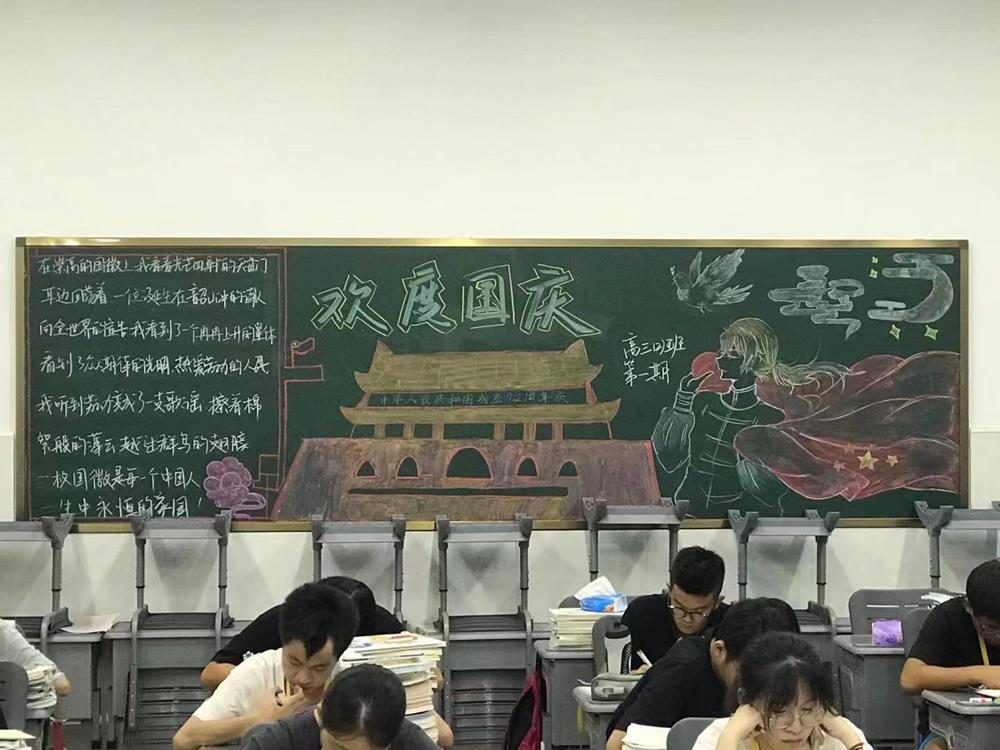 在崇高的国徽上 我看着光芒四射的天安门
耳边回荡着 一位诞生在韶山冲的诗人
向全世界的宣告 我看到了一个冉冉上升的星体
看到了众人期待的光明 热爱劳动的人民
我听到劳动变成了一支歌谣 擦着棉
絮般的暮云 越过群鸟的翅膀
一枚国徽是每一个中国人
一生中永恒的家园！
欢度国庆
中华人民共和国成立72周年庆
高三(1)班
第一期